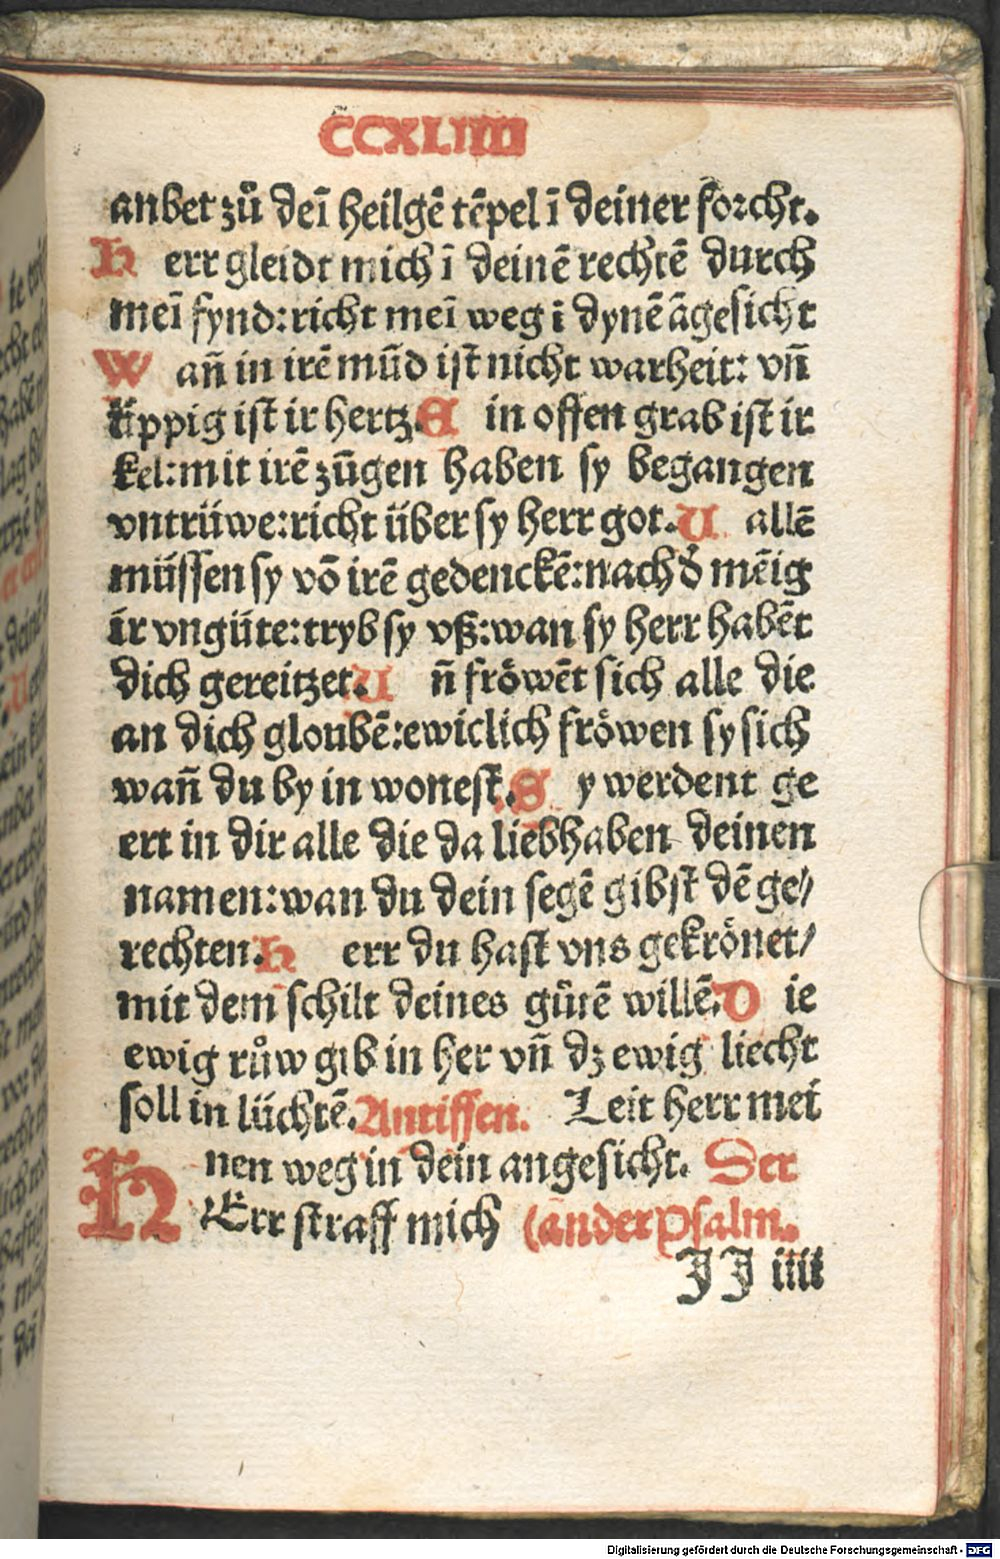 CCXLIIII
anbet zů deī heilgē tēpel ī deiner forcht.
H err gleidt mich ī deinē rechtē durch
meī fynd: richt meī weg ī dynē āgesicht
W an̄ in irē mūd ist nicht warheit: vn̄
üppig ist ir hertz. E in offen grab ist ir
kel: mit irē zūgen haben sy begangen
vntrüwe: richt über sy herr got. U allē
müssen sy vō irē gedenckē: nach d̄ mēig
ir vngüte: tryb sy vß: wan sy herr habēt
dich gereitzet. U n̄ fröwēt sich alle die
an dich gloubē: ewiclich fröwen sy sich
wan̄ du by in wonest. S y werdent ge
ert in dir alle die da liebhaben deinen
namen: wan du dein segē gibst dē ge/
rechten. H err du hast vns gekrönet/
mit dem schilt deines gůtē willē. D ie
ewig růw gib in her vn̄ dz ewig liecht
soll in lüchtē. Antiffen. Leit herr mei
nen weg in dein angesicht. Der
HErr straff mich (ander Psalm.
JJ iiii
te
Digitalisierung gefördert durch die Deutsche Forschungsgemeinschaft - DFG